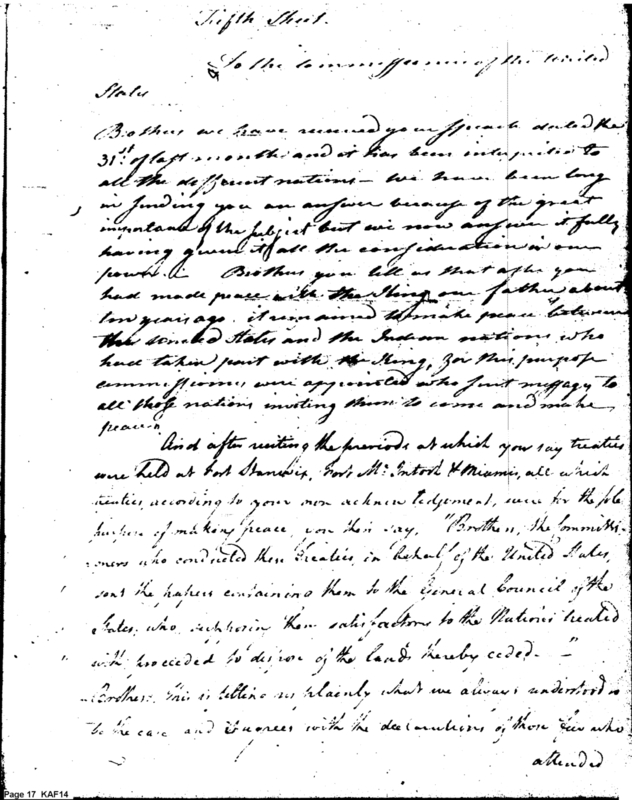 Fifth Sheet.
To the Commissioners of the United
States
Brothers we have received your Speach dated the
31st of last month and it has been interpreted to
all the different nations - we have been long
in sending you an answer because of the great
importance of the subject but we now answer it fully
having given it all the consideration in our
power. Brothers you tell us that after you
had made peace with the King our father about
ten years ago it remained to make peace between
the United States and the Indian nations who
had taken part with the King, For this purpose
commissioners were appointed who sent messages to
all those nations inviting them to come and make
peace"
And after reciting the periods at which you say treaties
were held at Fort Stanwix, Fort McIntosh & Miamis, all which
treaties, according to your own acknowledgement, were for the sole
purpose of making peace, you then say, "Brothers, the Commissi-
oners who conducted these Treaties, in behalf of the United States,
sent the papers containing them to the General Council of the
States, who supposing them satisfactory to the Nations treated
with proceeded to dispose of the lands thereby ceded. -"
Brothers. This is telling us plainly what we always understood
to be the case and it agrees with the declarations of those few who
attended
Page 17 KAF14